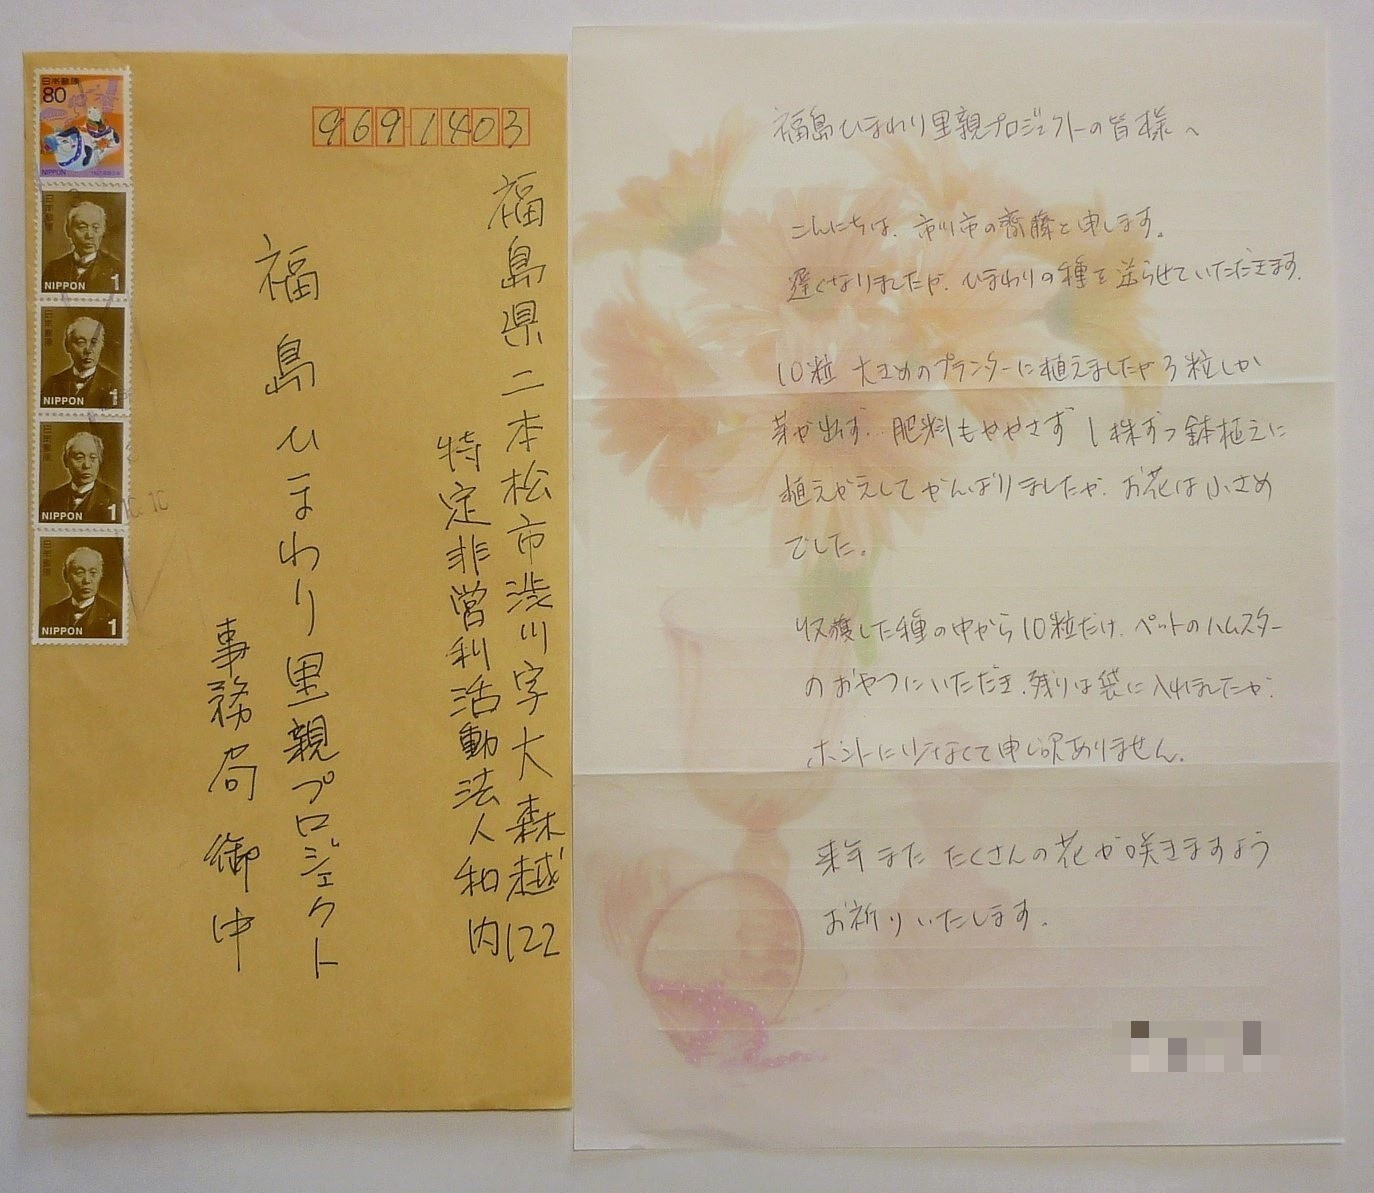 日本郵便
80
NIPPON
日本郵便
NIPPON 1
日本郵便
NIPPON 1
日本郵便
NIPPON 1
日本郵便
NIPPON 1
10.10
9691403
福島県二本松市渋川字大森越122
特定非営利活動法人和内
福島ひまわり里親プロジェクト
事務局 御中
福島ひまわり里親プロジェクトの皆様へ
こんにちは、市川市の齋藤と申します。
遅くなりましたが、ひまわりの種を送らせていただきます。
10粒 大きめのプランターに植えましたが3粒しか
芽が出ず… 肥料もややさず 1株ずつ鉢植えに
植えかえしてがんばりましたが、お花は小さめ
でした。
収獲した種の中から10粒だけ、ペットのハムスター
のおやつにいただき、残りは袋に入れましたが、
ホントに少なくて申し訳ありません。
来年また たくさんの花が咲きますよう
お祈りいたします。